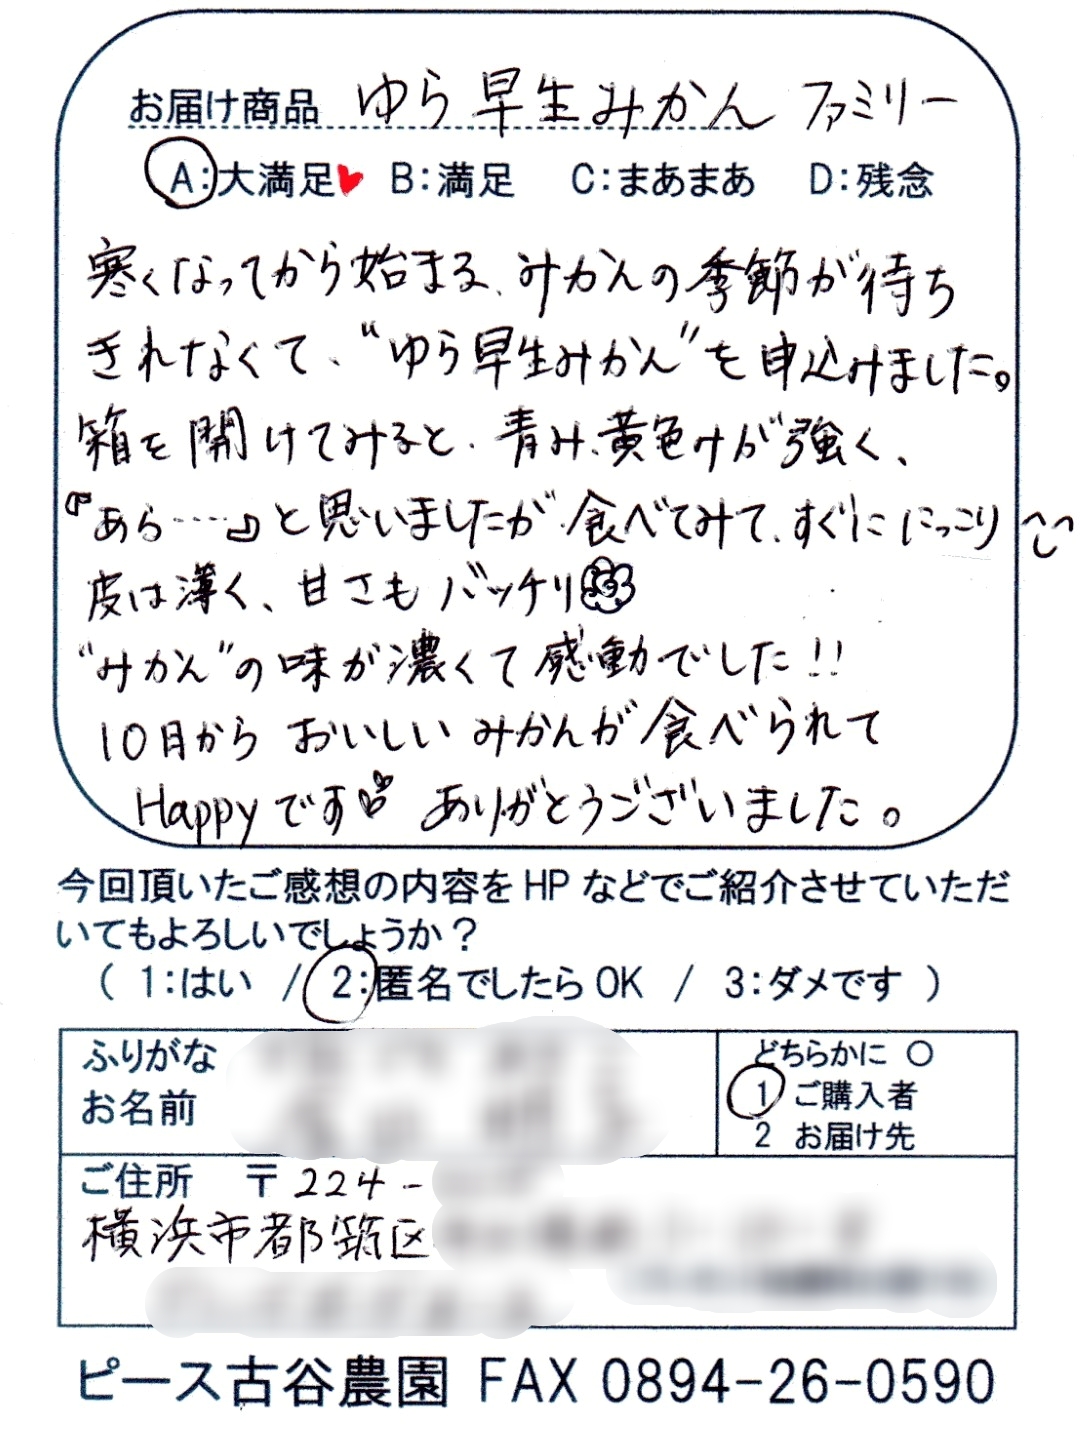 お届け商品 ゆら早生みかん ファミリー
A:大満足♥ B:満足 C:まあまあ D:残念
寒くなってから始まる、みかんの季節が待ち
きれなくて、“ゆら早生みかん”を申込みました。
箱を開けてみると、青み、黄色みが強く、
『あら……』と思いましたが食べてみて、すぐに にっこり
皮は薄く、甘さもバッチリ
“みかん”の味が濃くて感動でした!!
10月から おいしい みかんが食べられて
Happyです ありがとうございました。
今回頂いたご感想の内容をHPなどでご紹介させていただ
いてもよろしいでしょうか？
( 1:はい / 2:匿名でしたらOK / 3:ダメです )
ふりがな
お名前
どちらかに ○
1 ご購入者
2 お届け先
ご住所 〒224-
横浜市都筑区
ピース古谷農園 FAX 0894-26-0590